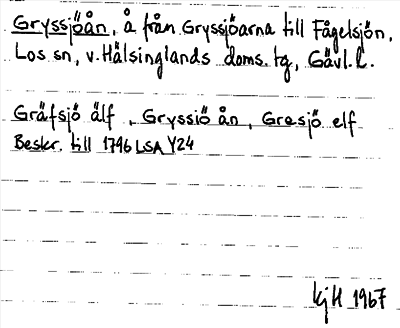 Gryssjöån, å från Gryssjöarna till Fågelsjön,
Los sn, v. Hälsinglands doms. tg, Gävl. l.
Gräfsjö älf, Gryssiö ån, Gresjö elf
Beskr. till 1796 LSA Y24
kjH 1967